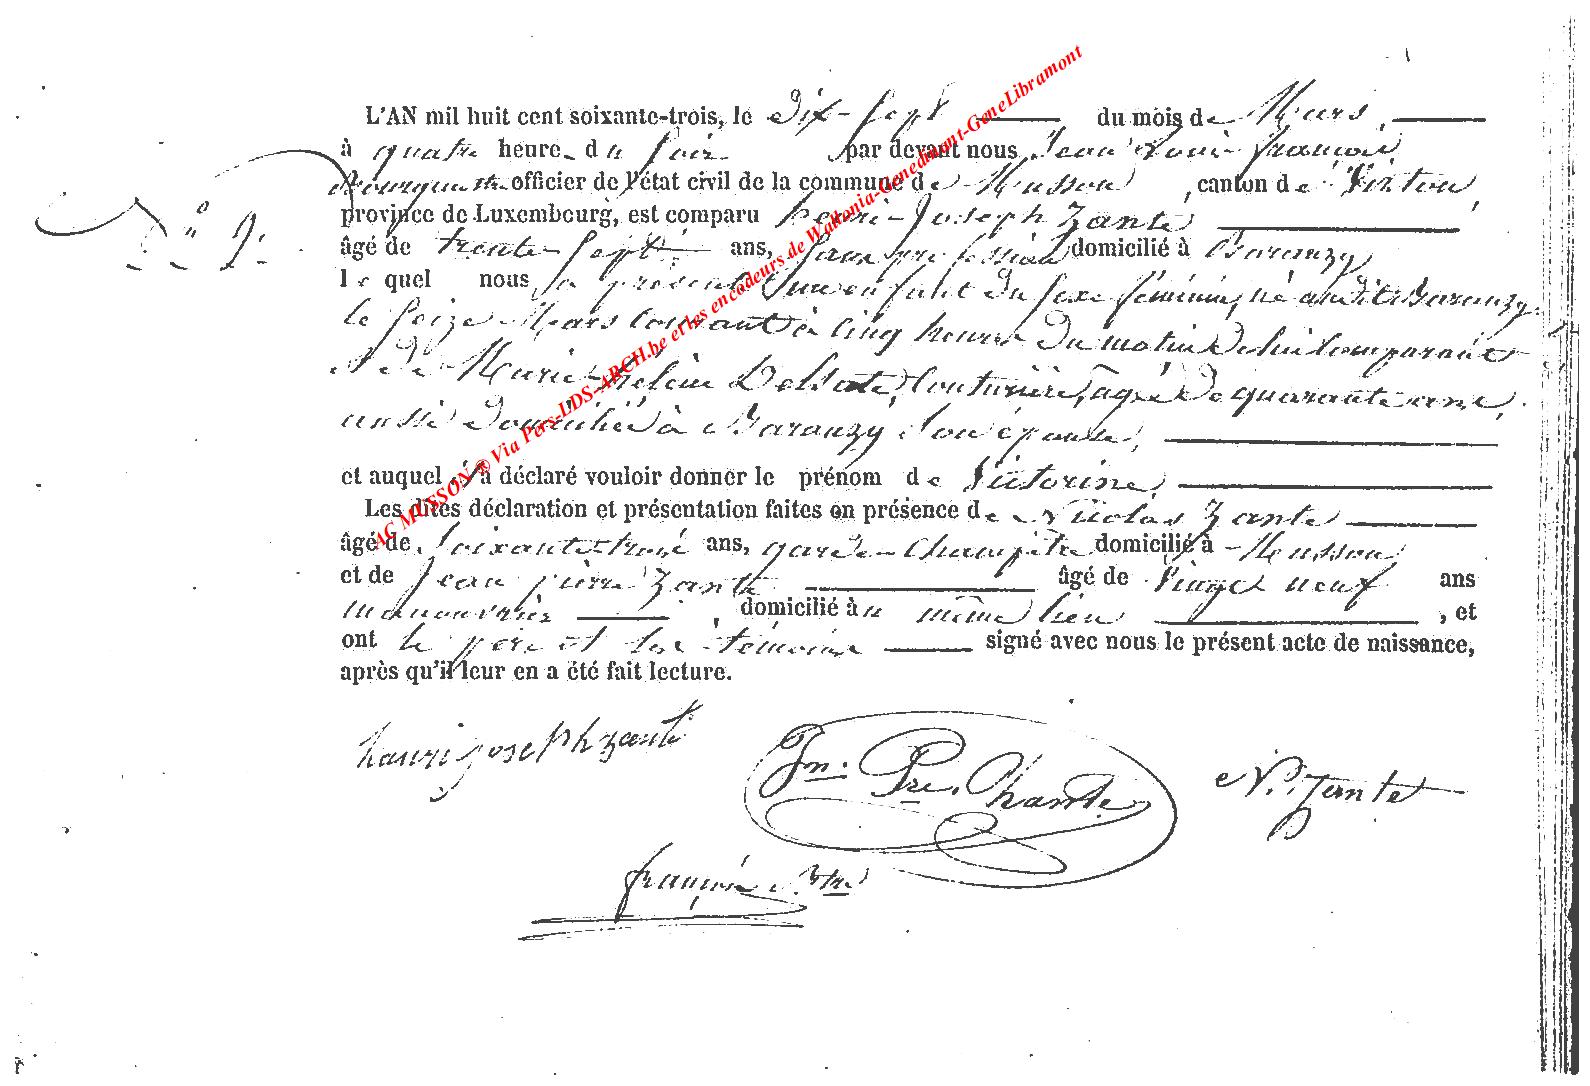 L'AN mil huit cent soixante-trois, le Dix-Sept du mois de Mars,
à quatre heure du soir par devant nous Jean Louis françois
officier de l'état civil de la commune de Musson, canton de Virton,
N° 9.
province de Luxembourg, est comparu henri-Joseph Zante
âgé de trente-Sept ans, Sans profession domicilié à Baranzy
lequel nous a présenté un enfant du sexe féminin, né audit Baranzy
le Seize Mars Courant à Cinq heures du matin de lui Comparant
et de Marie-helène Delsate, Couturière, agée de quarante ans,
aussi domicilié à Baranzy son épouse,
et auquel il a déclaré vouloir donner le prénom de Victorine,
Les dites déclaration et présentation faites en présence de Nicolas Zante
âgé de Soixante-trois ans, garde-Champêtre domicilié à Musson
et de Jean pierre Zante âgé de Vingt neuf ans
manouvrier, domicilié au même lieu, et
ont le père et les témoins signé avec nous le présent acte de naissance,
après qu'il leur en a été fait lecture.
hanri josephzante
Jn. Pre. Chante
N. Zante
françois
AC MUSSON ® Via Pers-LDS-ARCH.be et les encodeurs de Wallonia-Genedinant-GeneLibramont